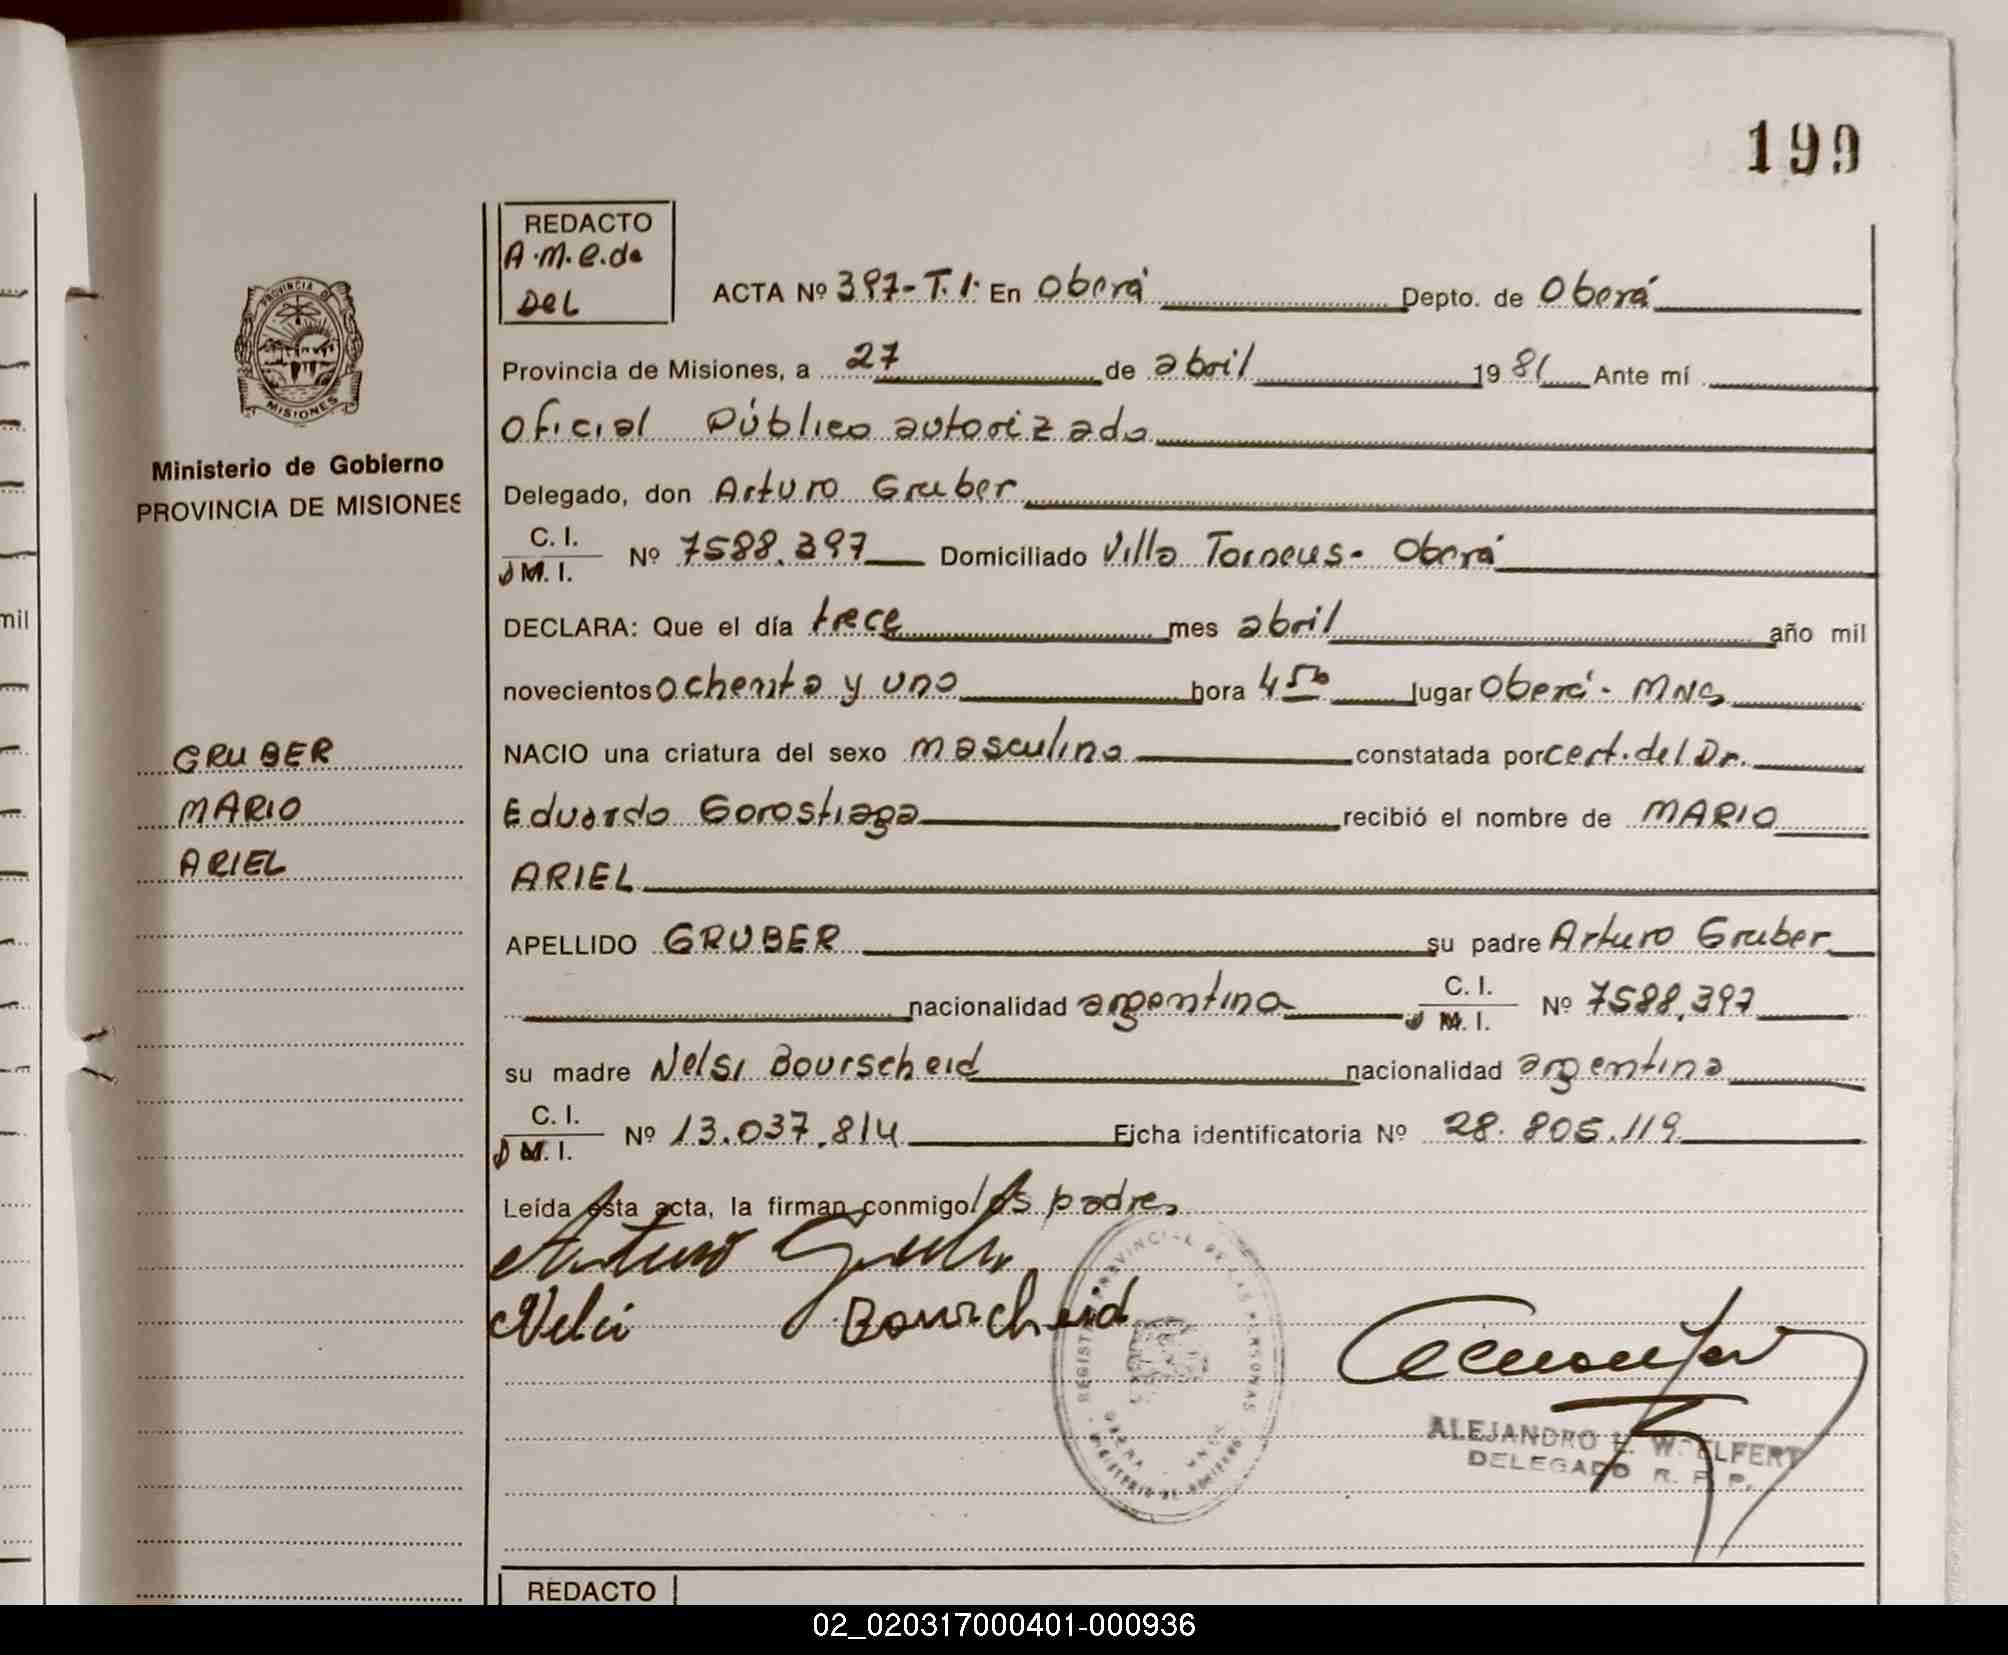 199
REDACTO
A.M.e.de
DEL
ACTA Nº 397-T.I. En Oberá Depto. de Oberá
PROVINCIA DE
MISIONES
Provincia de Misiones, a 27 de abril 1981 Ante mí
Oficial Público autorizado
Ministerio de Gobierno
PROVINCIA DE MISIONES
Delegado, don Arturo Gruber
C. I.
M. I.
Nº 7588.397 Domiciliado Villa Torneus - Oberá
mil
DECLARA: Que el día trece mes abril año mil
novecientos ochenta y uno hora 4 50 lugar Oberá - MNS
GRUBER
MARIO
ARIEL
NACIO una criatura del sexo masculino constatada por cert. del Dr.
Eduardo Gorostiaga recibió el nombre de MARIO
ARIEL
APELLIDO GRUBER su padre Arturo Gruber
nacionalidad argentina C. I.
M. I.
Nº 7588.397
su madre Nelsi Bourscheid nacionalidad argentina
C. I.
M. I.
Nº 13.037.814 Ficha identificatoria Nº 28.805.119
Leída esta acta, la firman conmigo los padres
Arturo Gruber
Nelsi Bourscheid
REGISTRO PROVINCIAL DE LAS PERSONAS
OBERA
MINISTERIO DE GOBIERNO
ALEJANDRO L. WOELFERT
DELEGADO R. P. P.
REDACTO
02_020317000401-000936